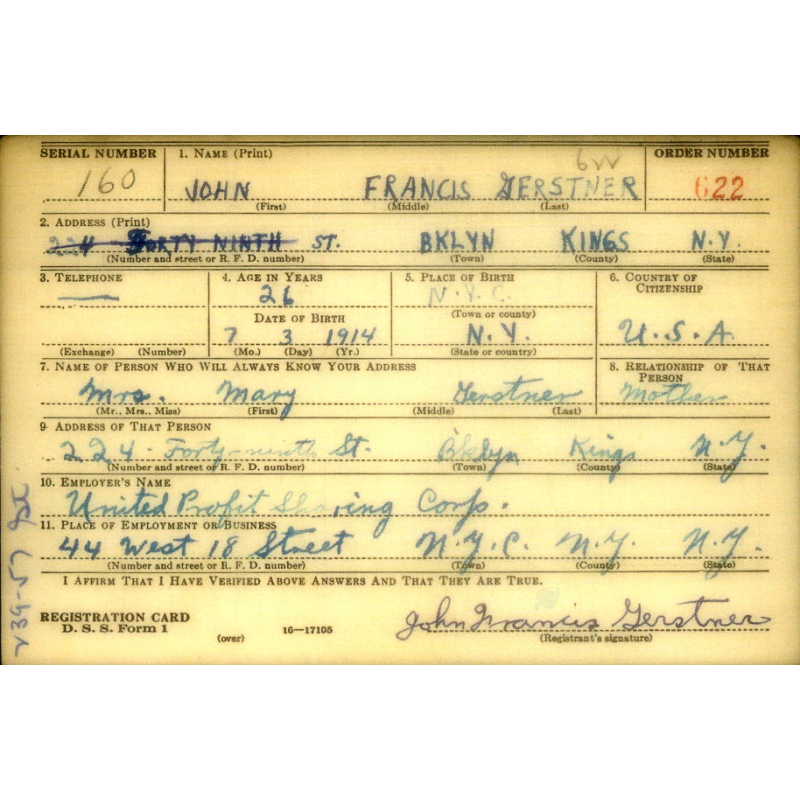 SERIAL NUMBER 1. NAME (Print) ORDER NUMBER
160 JOHN FRANCIS GERSTNER 622
(First) (Middle) (Last)
2. ADDRESS (Print)
224 FORTY NINTH ST. BKLYN KINGS N.Y.
(Number and street or R. F. D. number) (Town) (County) (State)
3. TELEPHONE 4. AGE IN YEARS 5. PLACE OF BIRTH 6. COUNTRY OF CITIZENSHIP
— 26 N.Y.C.
DATE OF BIRTH (Town or county)
7 3 1914 N.Y. U.S.A.
(Exchange) (Number) (Mo.) (Day) (Yr.) (State or country)
7. NAME OF PERSON WHO WILL ALWAYS KNOW YOUR ADDRESS 8. RELATIONSHIP OF THAT PERSON
Mrs. Mary Gerstner Mother
(Mr., Mrs., Miss) (First) (Middle) (Last)
9. ADDRESS OF THAT PERSON
224 - Forty-ninth St. B'klyn Kings N.Y.
(Number and street or R. F. D. number) (Town) (County) (State)
10. EMPLOYER'S NAME
United Profit Sharing Corp.
11. PLACE OF EMPLOYMENT OR BUSINESS
44 West 18 Street N.Y.C. N.Y. N.Y.
(Number and street or R. F. D. number) (Town) (County) (State)
I AFFIRM THAT I HAVE VERIFIED ABOVE ANSWERS AND THAT THEY ARE TRUE.
REGISTRATION CARD
D. S. S. Form 1 (over) 16—17105
John Francis Gerstner
(Registrant's signature)